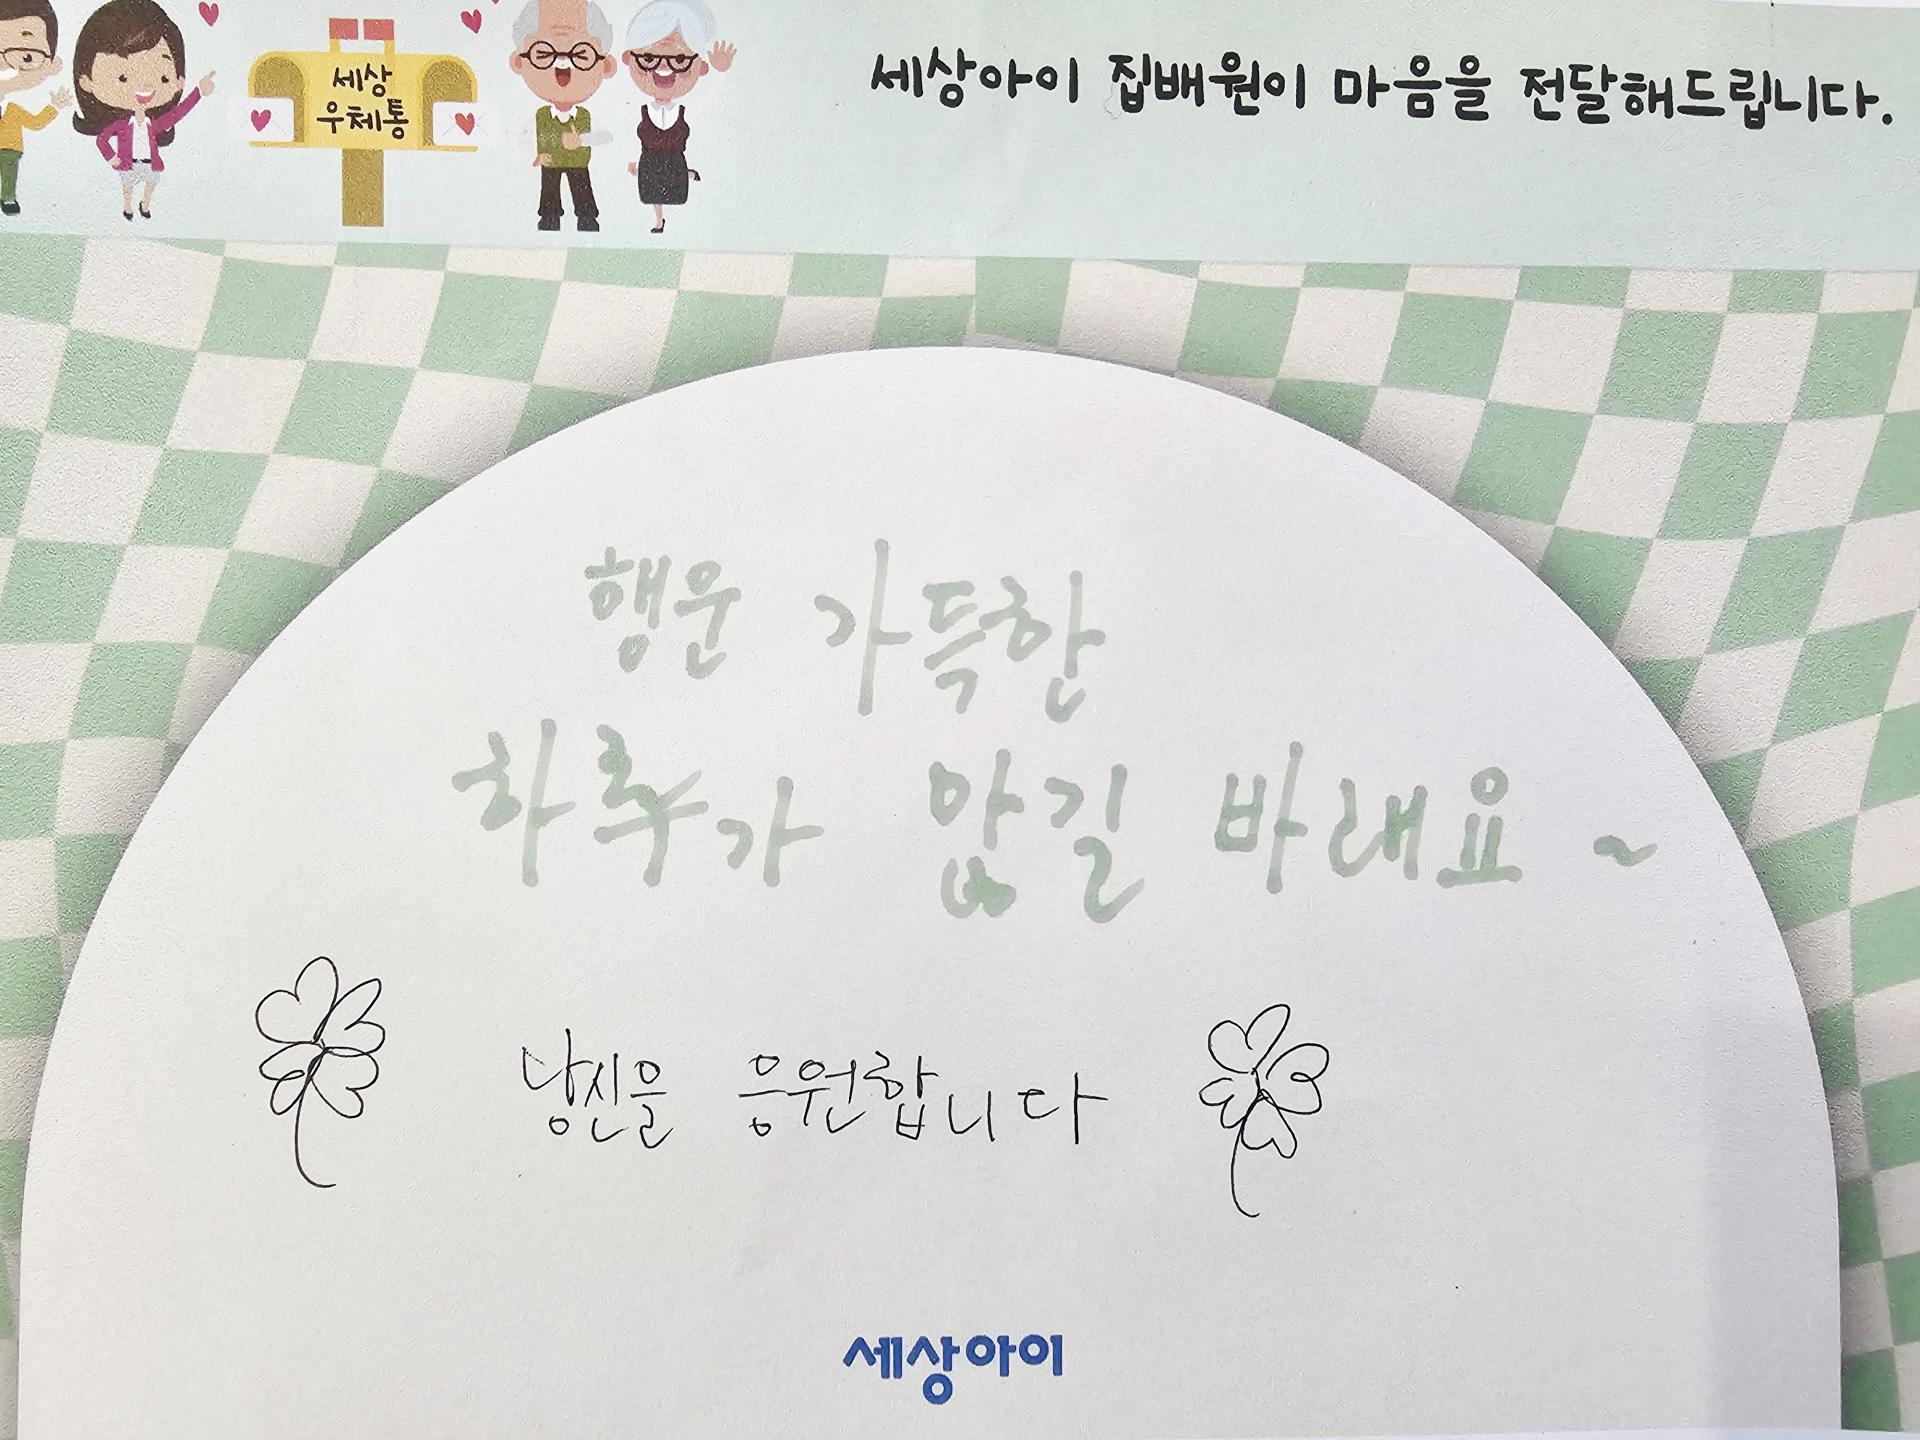 세상아이 집배원이 마음을 전달해드립니다.
세상
우체통
행운 가득한
하루가 앖길 바래요 ~
당신을 응원합니다
세상아이